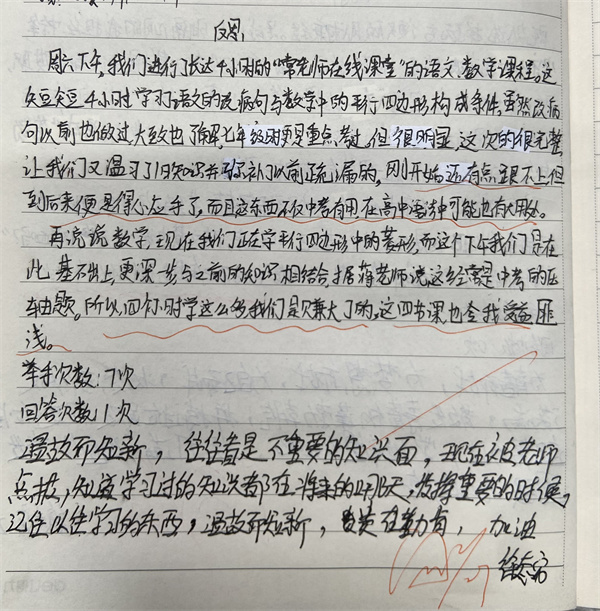 反思
周六下午,我们进行了长达4小时的"常老师在线课堂"的语文、数学课程。这
短短4小时学习语文的改病句与数学中的平行四边形构成条件。虽然改病
句以前也做过大致也了解,七年级时更是重点考过,但很明显,这次的很完整,
让我们又温习了旧知识并弥补了以前疏漏的,刚开始还有点跟不上但
到后来便是得心应手了,而且这东西不仅中考有用在高中语中可能也有大用处。
再说说数学,现在我们正在学平行四边形中的菱形,而这个下午我们是在
此基础上,更深一步与之前的知识相结合,据蒋老师说,这经常是中考的压
轴题。所以四个小时学这么多我们是赚大了的。这四节课也令我受益匪
浅。
举手次数:7次
回答次数:1次
温故而知新,往往者是不重要的知识面,现在被老师
点拨,知道学习过的知识都在将来的明天,发挥重要的时候,
记住以往学习的东西,温故而知新,贵在勤奋,加油